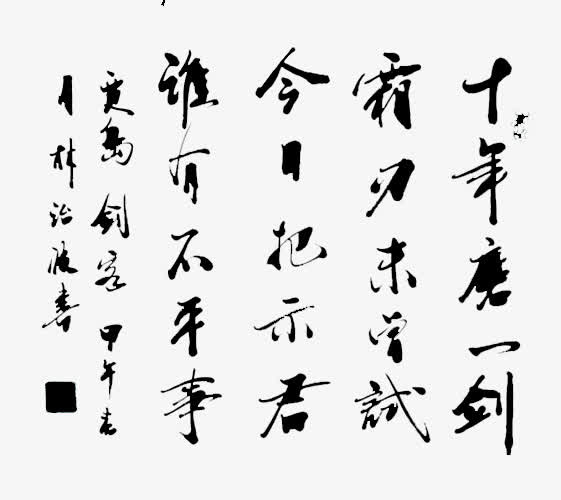 十年磨一剑
霜刃未曾試
今日把示君
谁有不平事
贾岛 剑客 甲午春
月 林治波書